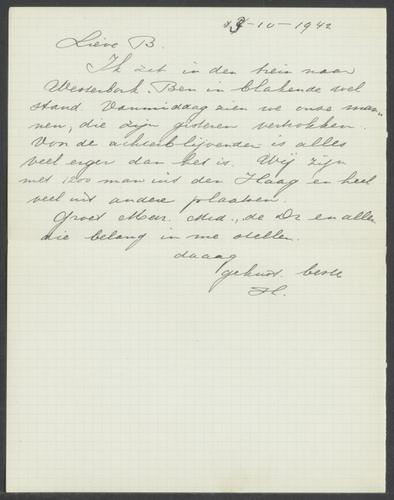 3-10-1942
Lieve B.
Ik zit in den trein naar
Westerbork. Ben in blakende wel
stand Vanmiddag zien we onze man"
nen, die zijn gisteren vertrokken.
Voor de achterblijvenden is alles
veel erger dan het is. Wij zijn
met 1200 man uit den Haag en heel
veel uit andere plaatsen.
Groet Mevr. Mid., de Dr en allen
die belang in me stellen.
daaag
gekust. beste
H.